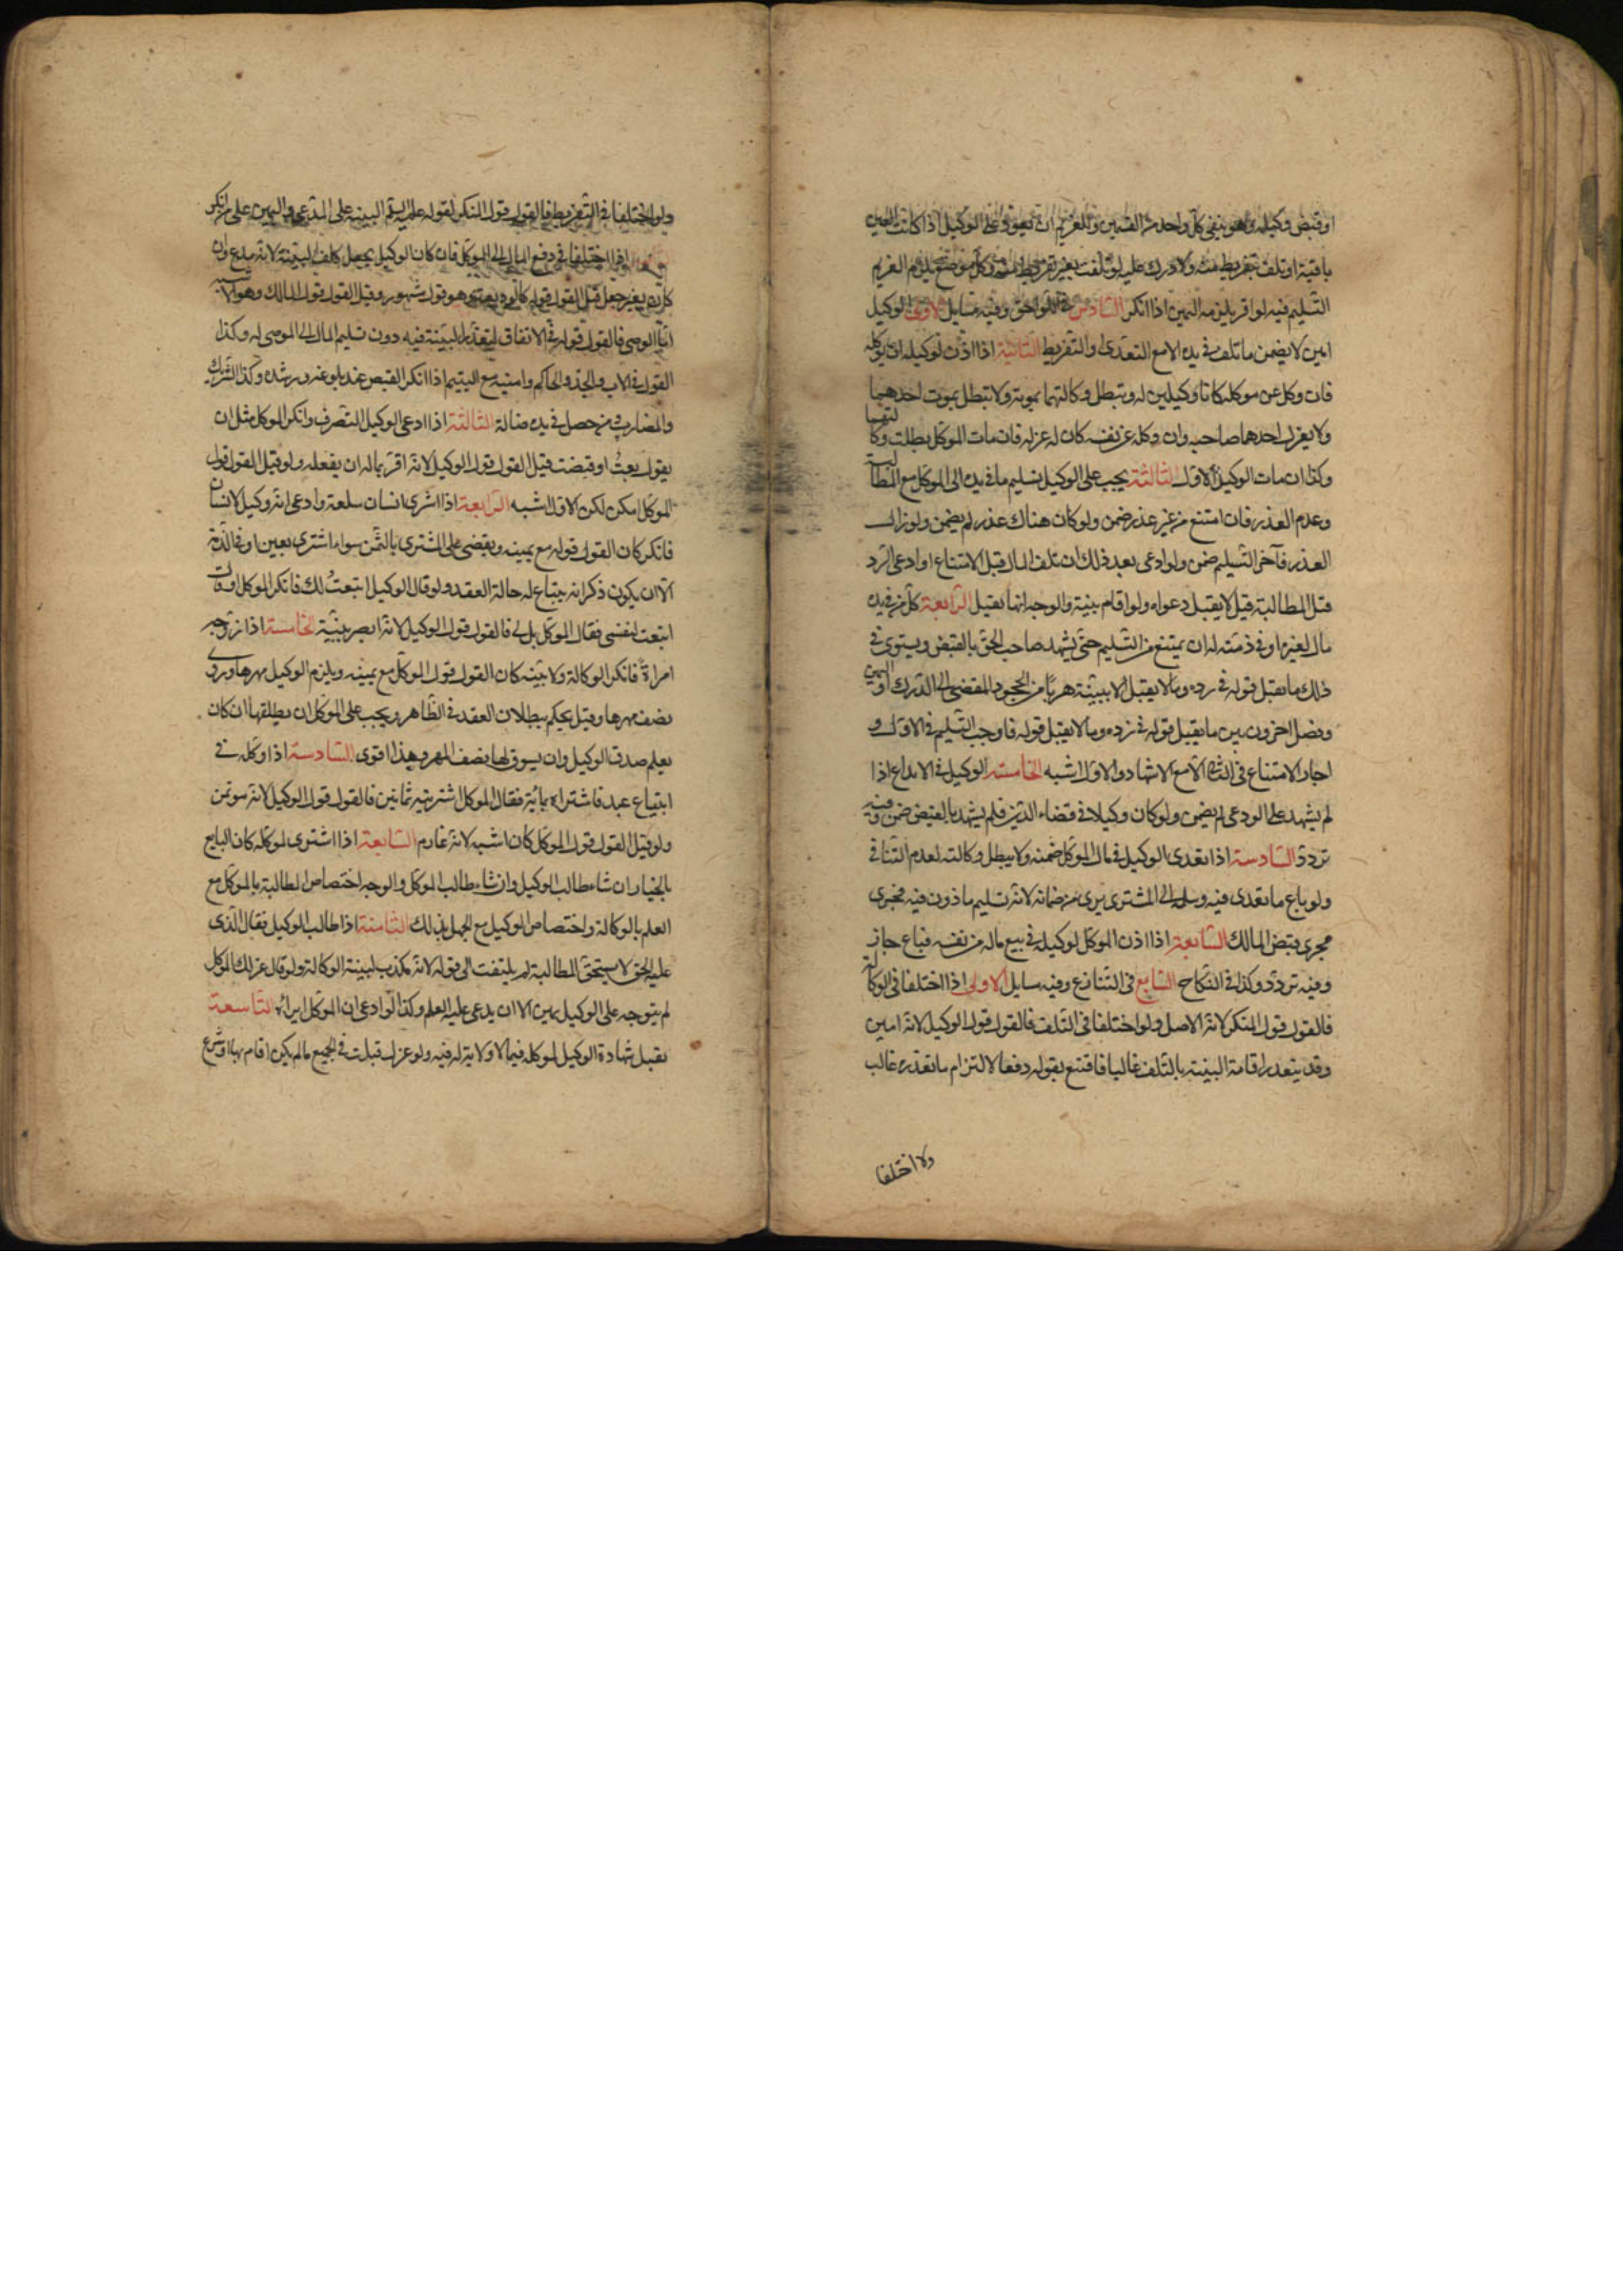 او قبض وكيله وهو ينفي كل واحد من القسمين وللغريم ان يعود على الوكيل اذا كانت العين
باقية او تلف بتفريط منه ولا درك عليه لو تلفت بغير تفريط منه وكل موضع يلزم الغريم
التسليم فيه لو اقر يلزمه اليمين اذا انكر السادس في اللواحق وفيه مسايل الاولى الوكيل
امين لا يضمن ما تلف في يده الا مع التعدى او التفريط الثانية اذا اذن لوكيله ان يوكله
فان وكل عن موكله كانا وكيلين له وتبطل وكالتهما بموته ولا تبطل بموت احدهما
ولا بعزل احدهما صاحبه وان وكله عن نفسه كان له عزله فان مات الموكل بطلت وكالتهما
وكذا ان مات الوكيل الاول الثالثة يجب على الوكيل تسليم ما في يده الى الموكل مع المطالبة
وعدم العذر فان امتنع من غير عذر ضمن ولو كان هناك عذر لم يضمن ولو زال
العذر فآخر التسليم ضمن ولو ادعى بعد ذلك ان تلف المال قبل الامتناع او ادعى الرد
قبل المطالبة قيل لا يقبل دعواه ولو اقام بينة والوجه انها تقبل الرابعة كل من في يده
مال لغيره او في ذمته له ان يمتنع من التسليم حتى يشهد صاحب الحق بالقبض ويستوى في
ذلك ما يقبل قوله في رده وما لا يقبل الا ببينة هربا من الجحود المفضى الى الدرك او اليمين
وفصل اخرون بين ما يقبل قوله في رده وما لا يقبل قوله فاوجب التسليم في الاول و
اجاز الامتناع في الثاني الا مع الاشهاد والاول اشبه الخامسة الوكيل في الايداع اذا
لم يشهد على الودعى لم يضمن ولو كان وكيلا في قضاء الدين فلم يشهد بالقبض ضمن وفيه
تردد السادسة اذا تعدى الوكيل في مال الموكل ضمنه ولا يبطل وكالته لعدم التنافي
ولو باع ما تعدى فيه وسلمه الى المشترى برى من ضمانه لانه تسليم ماذون فيه فجرى
مجرى قبض المالك السابعة اذا اذن الموكل لوكيله في بيع ماله من نفسه فباع جاز
وفيه تردد وكذا في النكاح السابع في التنازع وفيه مسايل الاولى اذا اختلفا في الوكالة
فالقول قول المنكر لانه الاصل ولو اختلفا في التلف فالقول قول الوكيل لانه امين
وقد يتعذر اقامة البينة بالتلف غالبا فاقتنع بقوله دفعا لالتزام ما تعذر غالبا
ولو اختلفا
ولو اختلفا في التفريط فالقول قول المنكر لقوله عليه السلم البينة على المدعى واليمين على من انكر
اذا اختلفا في دفع المال الى الموكل فان كان الوكيل بجعل كلف البينة لانه مدع وان
كان بغير جعل قيل القول قوله كالوديعة وهو قول مشهور وقيل القول قول المالك وهو الاشبه
اما الوصى فالقول قوله في الانفاق لتعذر البينة فيه دون تسليم المال الى الموصى له وكذا
القول في الاب والجد والحاكم وامينه مع اليتيم اذا انكر القبض عند بلوغه ورشده وكذا الشريك
والمضارب ومن حصل في يده ضالة الثالثة اذا ادعى الوكيل التصرف وانكر الموكل مثل ان
يقول بعت او قبضت قيل القول قول الوكيل لانه اقر بما له ان يفعله ولو قيل القول قول
الموكل امكن لكن الاول اشبه الرابعة اذا اشترى انسان سلعة وادعى انه وكيل لانسان
فانكر كان القول قوله مع يمينه ويقضى على المشترى بالثمن سواء اشترى بعين او في الذمة
الا ان يكون ذكر انه يبتاع له حالة العقد ولو قال الوكيل ابتعت لك فانكر الموكل او قال
ابتعت لنفسى فقال الموكل بل لى فالقول قول الوكيل لانه ابصر بنيته الخامسة اذا زوجه
امراة فانكر الوكالة ولا بينة كان القول قول الموكل مع يمينه ويلزم الوكيل مهرها وروى
نصف مهرها وقيل يحكم ببطلان العقد في الظاهر ويجب على الموكل ان يطلقها ان كان
يعلم صدق الوكيل وان يسوق لها نصف المهر وهذا اقوى السادسة اذا وكله في
ابتياع عبد فاشتراه بمائة فقال الموكل اشتريته بثمانين فالقول قول الوكيل لانه موتمن
ولو قيل القول قول الموكل كان اشبه لانه غارم السابعة اذا اشترى لموكله كان البايع
بالخيار ان شاء طالب الوكيل وان شاء طالب الموكل والوجه اختصاص المطالبة بالموكل مع
العلم بالوكالة واختصاص الوكيل مع الجهل بذلك الثامنة اذا طالب الوكيل فقال الذى
عليه الحق لا يستحق المطالبة لم يلتفت الى قوله لانه مكذب لبينة الوكالة ولو قال عزلك الموكل
لم يتوجه على الوكيل يمين الا ان يدعى عليه العلم وكذا لو ادعى ان الموكل ابراه التاسعة
تقبل شهادة الوكيل لموكله فيما لا ولاية له فيه ولو عزل قبلت في الجميع ما لم يكن اقام بها او شرع